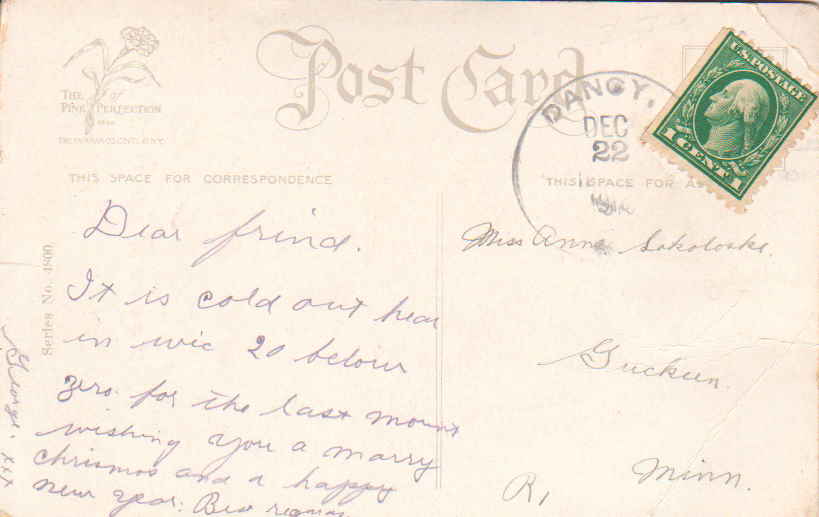 THE PINK of PERFECTION
Post Card
DANCY,
DEC
22
U.S. POSTAGE
1 CENT 1
THIS SPACE FOR CORRESPONDENCE
THIS SPACE FOR
Series No. 1800.
Dear frind.
It is cold out hear
in wic 20 belour
zero. for the last mount
wishing you a marry
chrismos and a happy
new year. Best
George. xxx
Miss Anna Sokoloske.
Minn.
R1